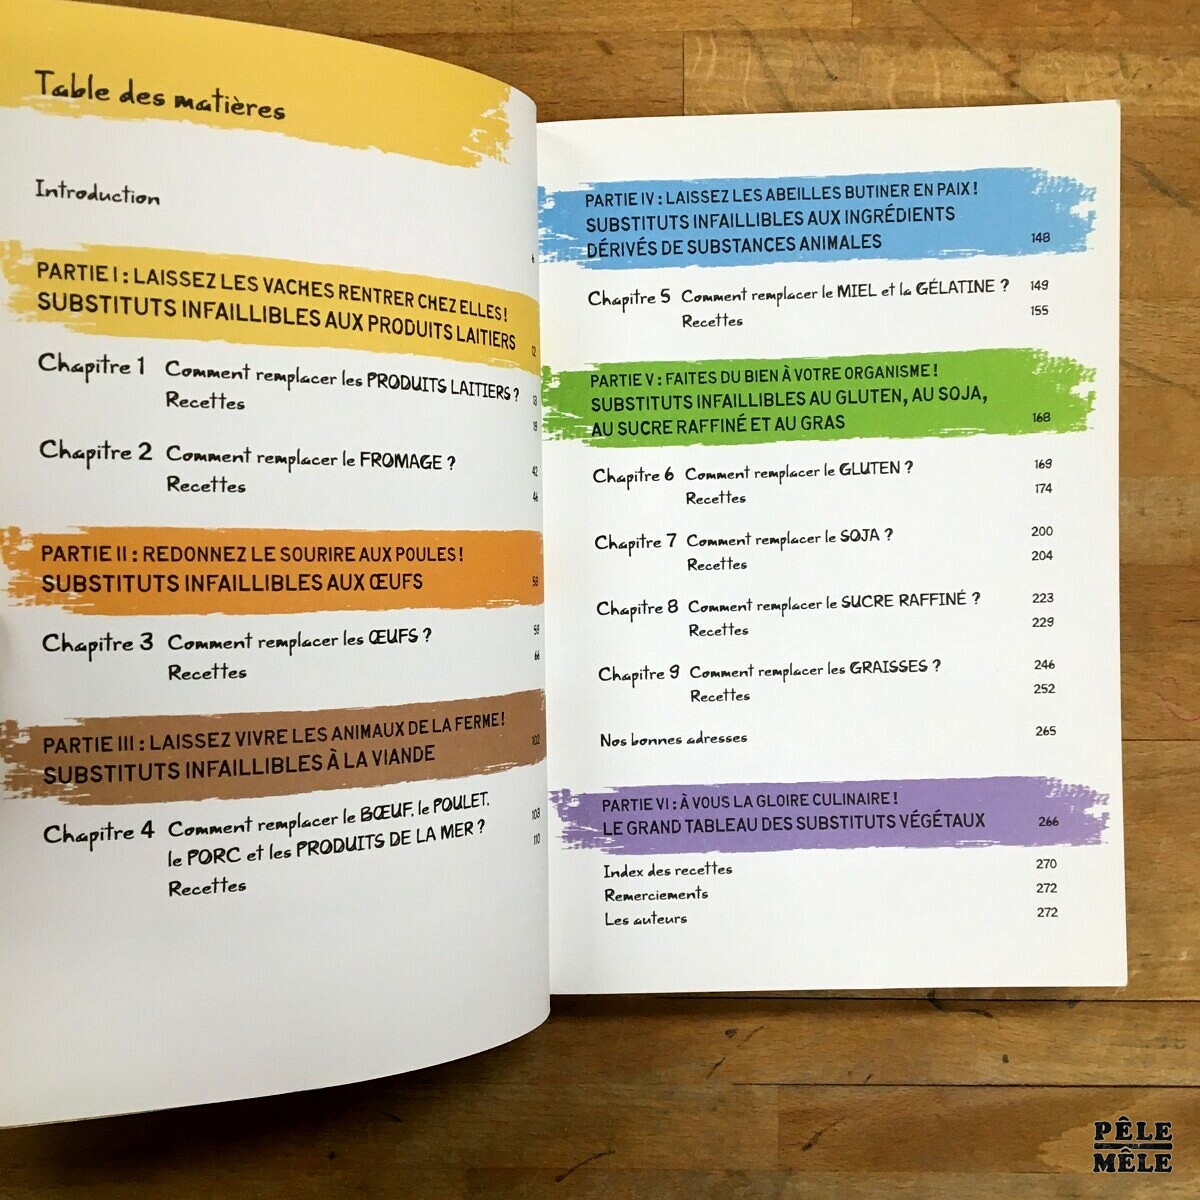 Table des matières
Introduction
6
PARTIE I : LAISSEZ LES VACHES RENTRER CHEZ ELLES !
SUBSTITUTS INFAILLIBLES AUX PRODUITS LAITIERS 12
Chapitre 1 Comment remplacer les PRODUITS LAITIERS ? 13
Recettes 19
Chapitre 2 Comment remplacer le FROMAGE ? 42
Recettes 46
PARTIE II : REDONNEZ LE SOURIRE AUX POULES !
SUBSTITUTS INFAILLIBLES AUX ŒUFS 58
Chapitre 3 Comment remplacer les ŒUFS ? 59
Recettes 66
PARTIE III : LAISSEZ VIVRE LES ANIMAUX DE LA FERME !
SUBSTITUTS INFAILLIBLES À LA VIANDE 102
Chapitre 4 Comment remplacer le BŒUF, le POULET, 103
le PORC et les PRODUITS DE LA MER ? 110
Recettes
PARTIE IV : LAISSEZ LES ABEILLES BUTINER EN PAIX !
SUBSTITUTS INFAILLIBLES AUX INGRÉDIENTS
DÉRIVÉS DE SUBSTANCES ANIMALES 148
Chapitre 5 Comment remplacer le MIEL et la GÉLATINE ? 149
Recettes 155
PARTIE V : FAITES DU BIEN À VOTRE ORGANISME !
SUBSTITUTS INFAILLIBLES AU GLUTEN, AU SOJA,
AU SUCRE RAFFINÉ ET AU GRAS 168
Chapitre 6 Comment remplacer le GLUTEN ? 169
Recettes 174
Chapitre 7 Comment remplacer le SOJA ? 200
Recettes 204
Chapitre 8 Comment remplacer le SUCRE RAFFINÉ ? 223
Recettes 229
Chapitre 9 Comment remplacer les GRAISSES ? 246
Recettes 252
Nos bonnes adresses 265
PARTIE VI : À VOUS LA GLOIRE CULINAIRE !
LE GRAND TABLEAU DES SUBSTITUTS VÉGÉTAUX 266
Index des recettes 270
Remerciements 272
Les auteurs 272
PÊLE
MÊLE